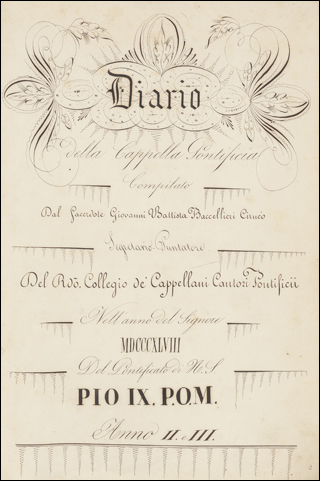 Diario
della Cappella Pontificia
Compilato
Dal Sacerdote Giovanni Battista Baccellieri Cinico
Segretario Puntatore
Del Rdo. Collegio de' Cappellani Cantori Pontificii
Nell'anno del Signore
MDCCCXLVIII
Del Pontificato di N.S.
PIO IX. P.O.M.
Anno II. e III.